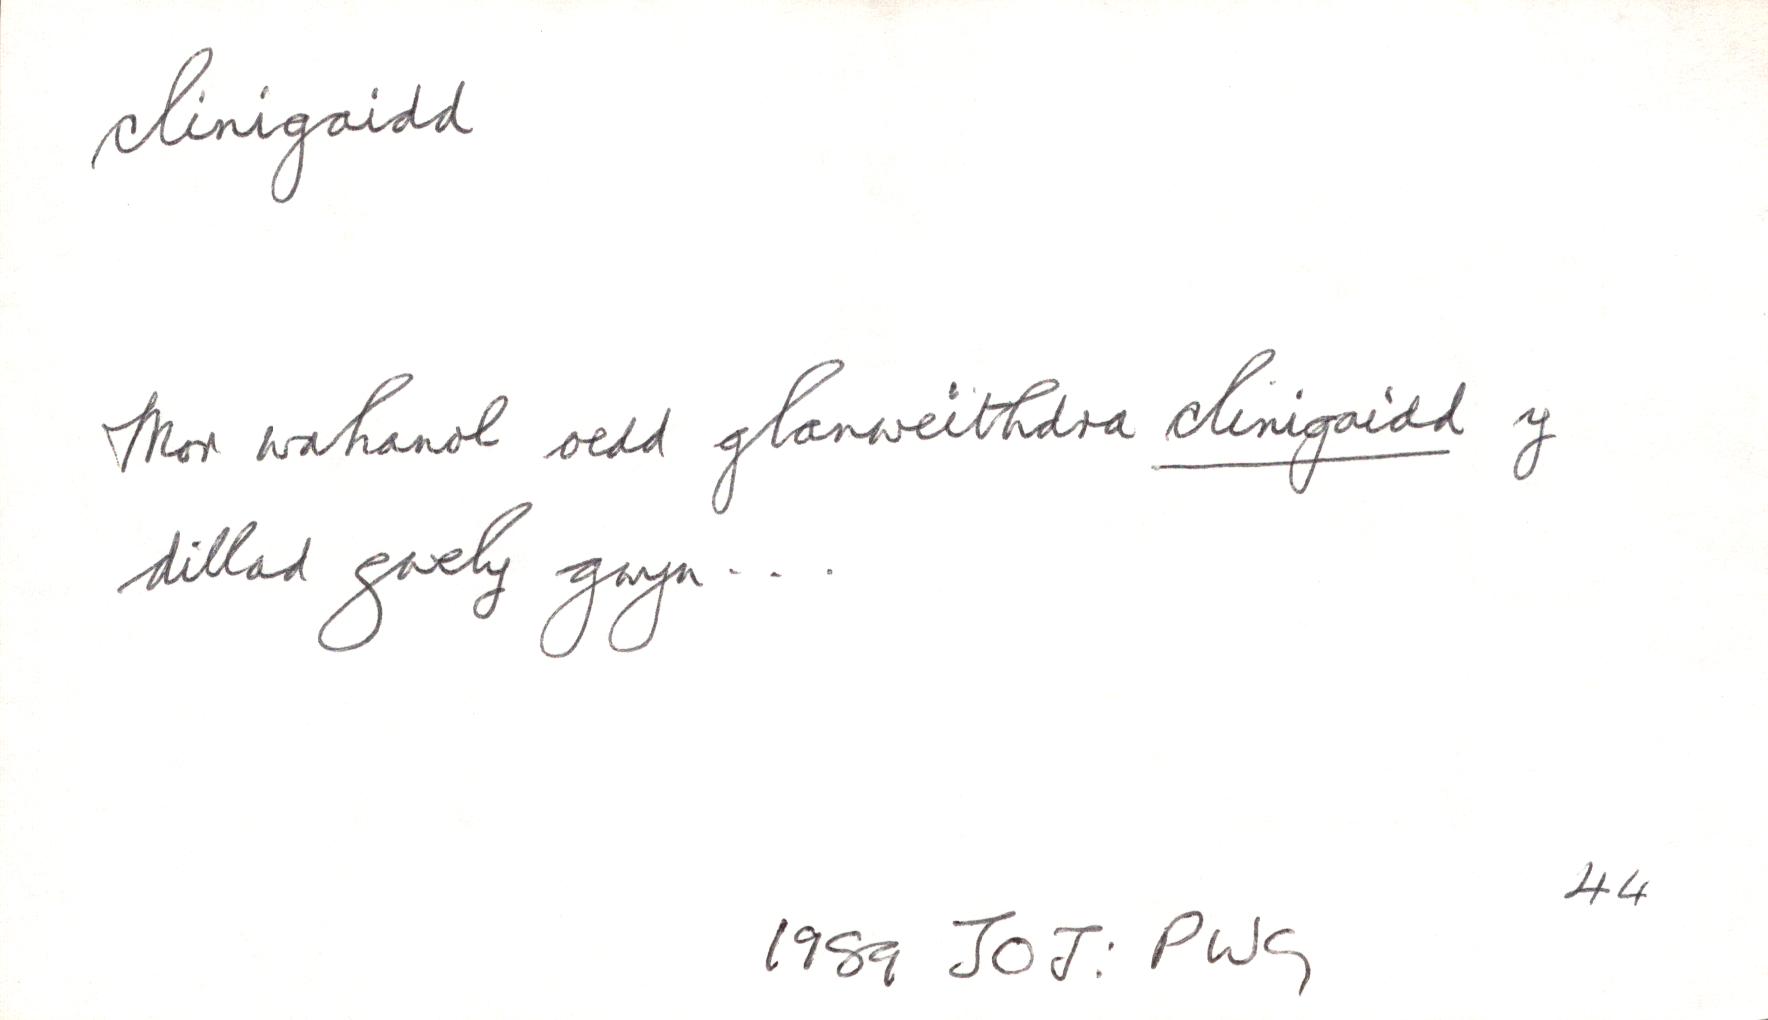 clinigaidd
Mor wahanol oedd glanweithdra clinigaidd y
dillad gwely gwyn...
44
1989 JOJ: PWG